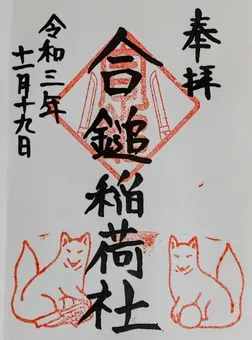 奉拝
合鎚稲荷社
令和三年
十一月十九日